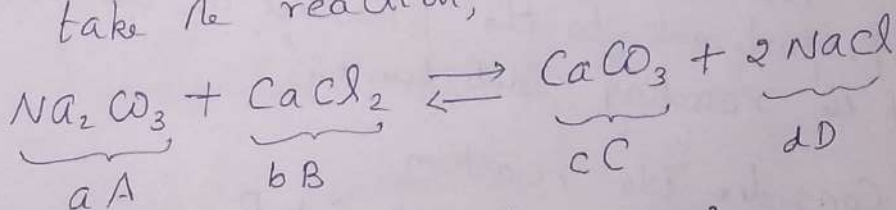 take the reaction,
Na₂CO₃ + CaCl₂ ⇌ CaCO₃ + 2 NaCl
aA bB cC dD